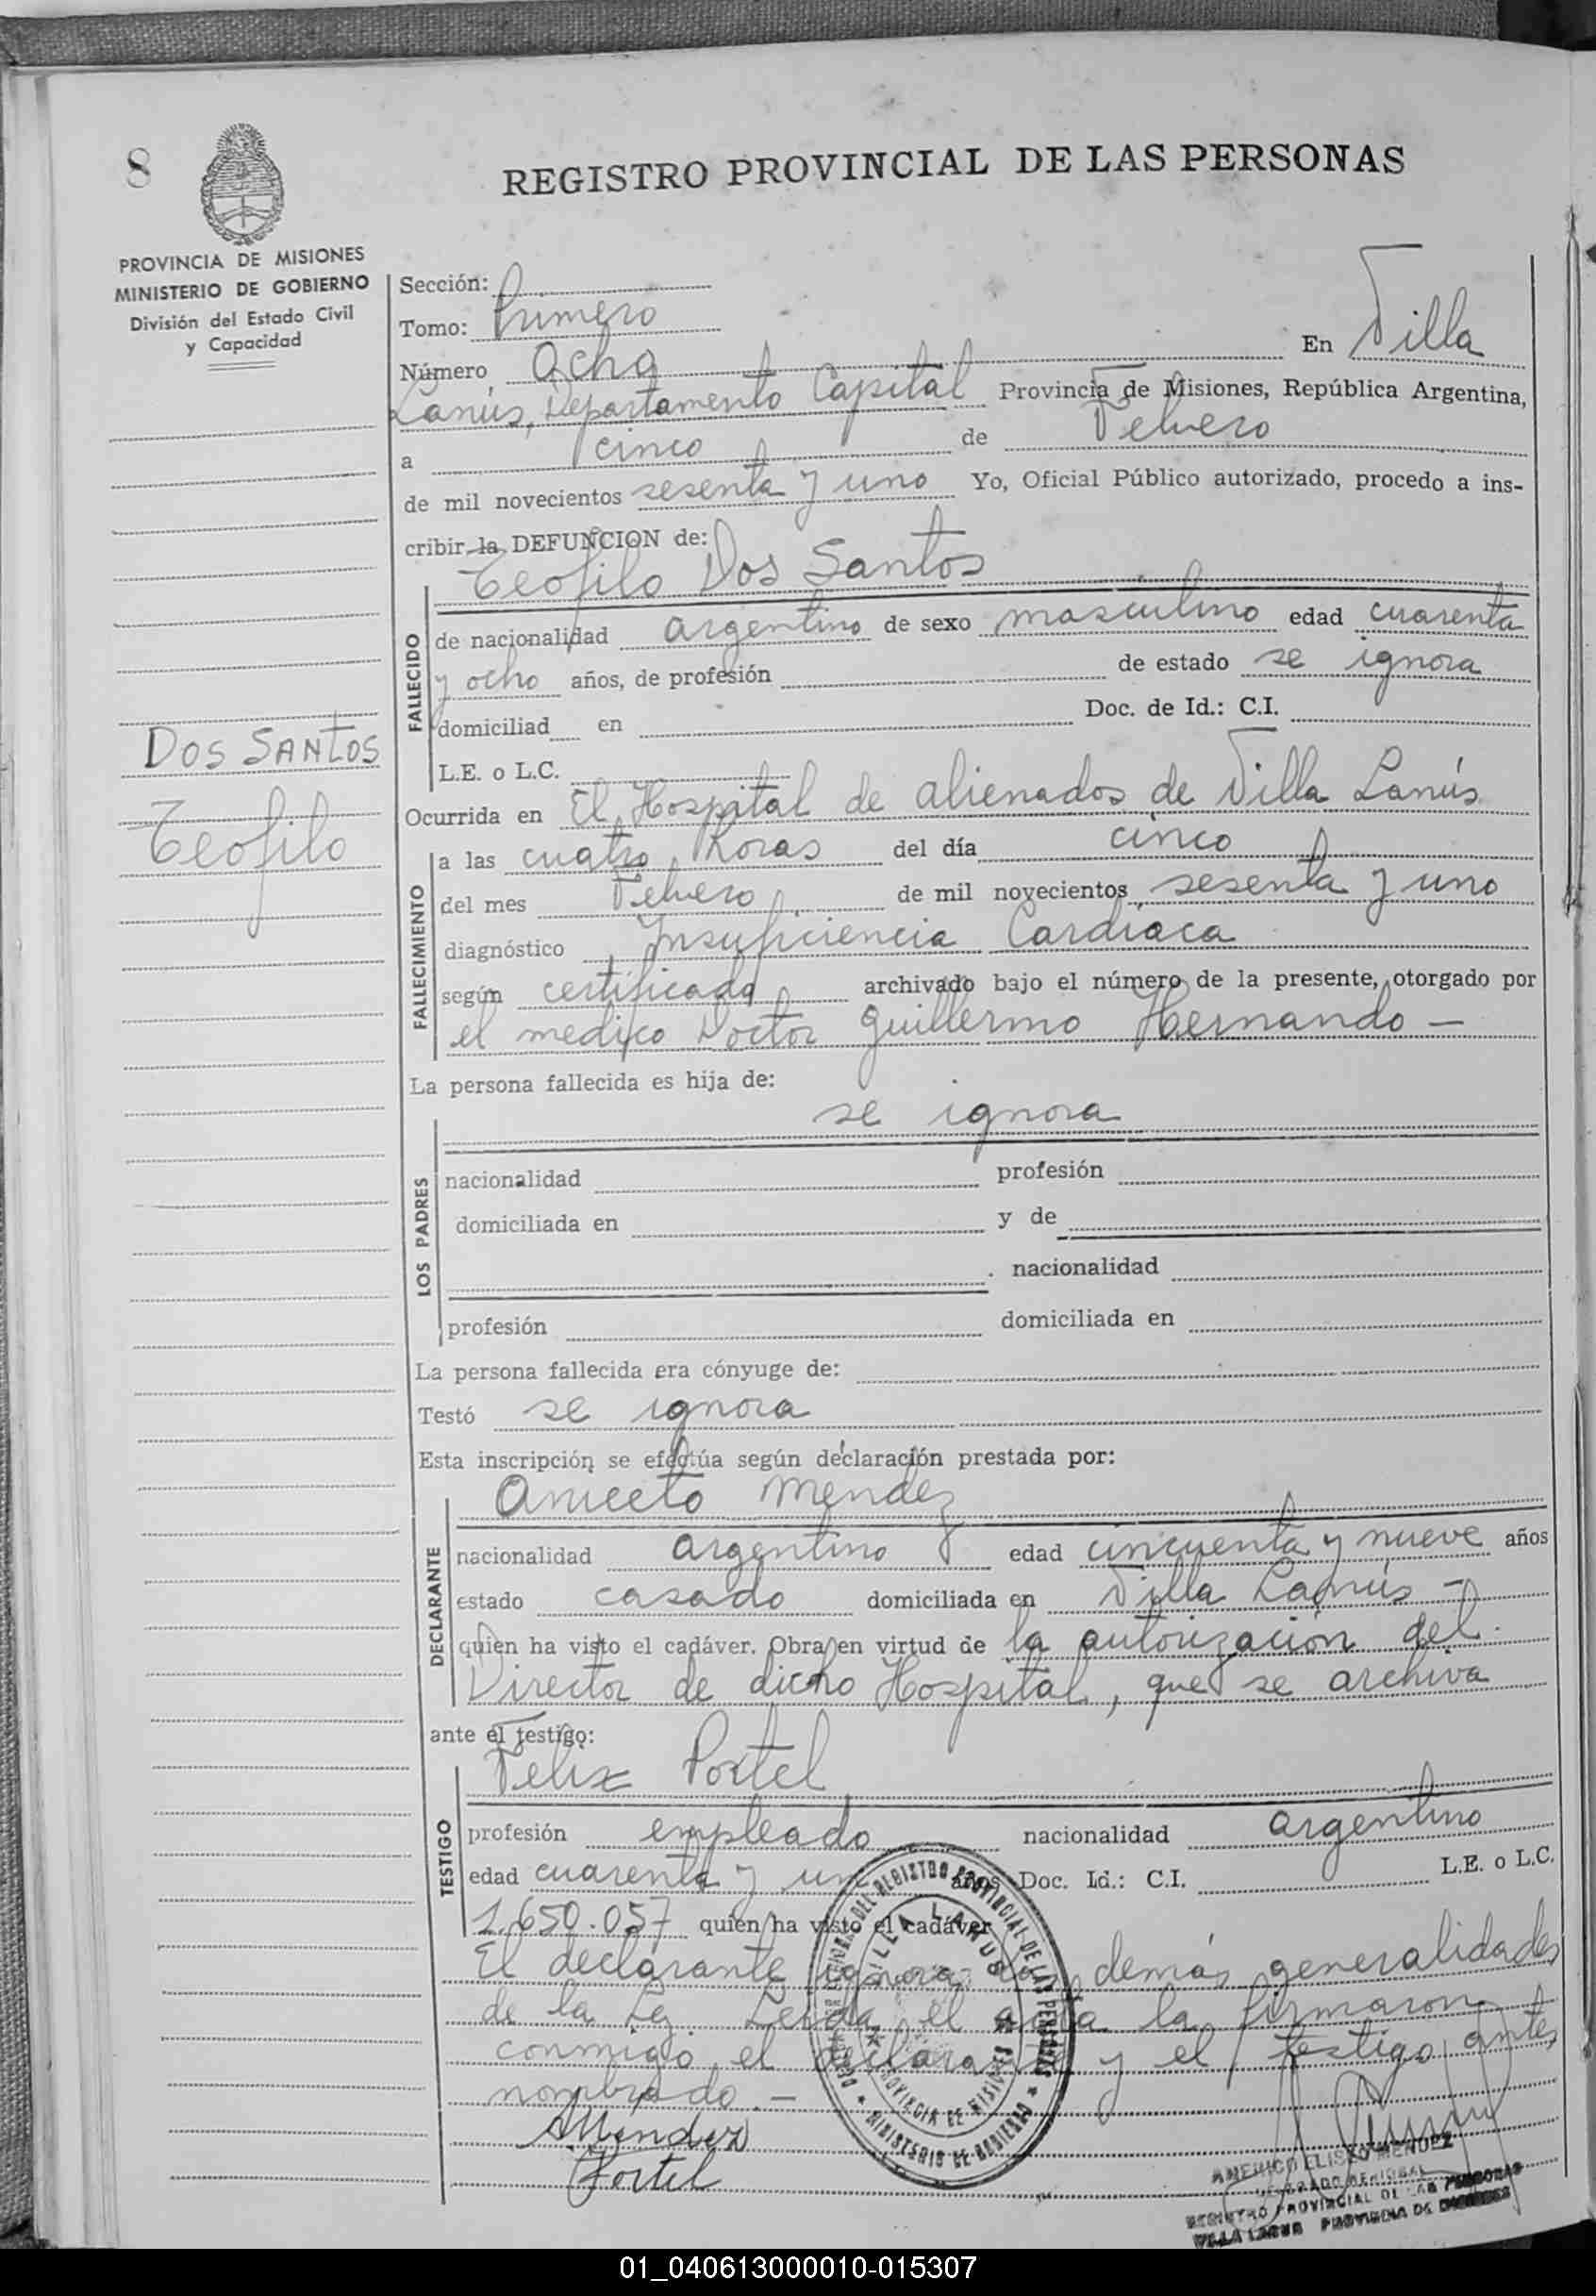 8
REGISTRO PROVINCIAL DE LAS PERSONAS
PROVINCIA DE MISIONES
MINISTERIO DE GOBIERNO
División del Estado Civil
y Capacidad
Sección:
Tomo: Primero
Número Ocho En Villa
Lanús, Departamento Capital Provincia de Misiones, República Argentina,
a cinco de Febrero
de mil novecientos sesenta y uno Yo, Oficial Público autorizado, procedo a ins-
cribir la DEFUNCION de:
Teofilo Dos Santos
FALLECIDO
de nacionalidad argentino de sexo masculino edad cuarenta
y ocho años, de profesión de estado se ignora
domiciliad en Doc. de Id.: C.I.
L.E. o L.C.
DOS SANTOS
Teofilo
Ocurrida en El Hospital de alienados de Villa Lanús
FALLECIMIENTO
a las cuatro horas del día cinco
del mes Febrero de mil novecientos sesenta y uno
diagnóstico Insuficiencia Cardíaca
según certificado archivado bajo el número de la presente, otorgado por
el medico Doctor Guillermo Hernando —
La persona fallecida es hija de:
se ignora
LOS PADRES
nacionalidad profesión
domiciliada en y de
nacionalidad
profesión domiciliada en
La persona fallecida era cónyuge de:
Testó se ignora
Esta inscripción se efectúa según declaración prestada por:
Aniceto Mendez
DECLARANTE
nacionalidad argentino edad cincuenta y nueve años
estado casado domiciliada en Villa Lanús —
quien ha visto el cadáver. Obra en virtud de la autorización del
Director de dicho Hospital, que se archiva
ante el testigo:
Felix Portel
TESTIGO
profesión empleado nacionalidad argentino
edad cuarenta y un años Doc. Id.: C.I. L.E. o L.C.
1.650.057 quien ha visto el cadáver
El declarante ignora demás generalidades
de la Ley. Leida el acta la firmaron
conmigo, el declarante y el testigo antes
nombrado. —
AMendez
Portel
VILLA LANUS
PROVINCIA DE MISIONES
MINISTERIO DE GOBIERNO
DEL REGISTRO PROVINCIAL DE LAS PERSONAS
AMERICO ELISEO
REGISTRO PROVINCIAL DE LAS PERSONAS
VILLA LANUS PROVINCIA DE MISIONES
01_040613000010-015307